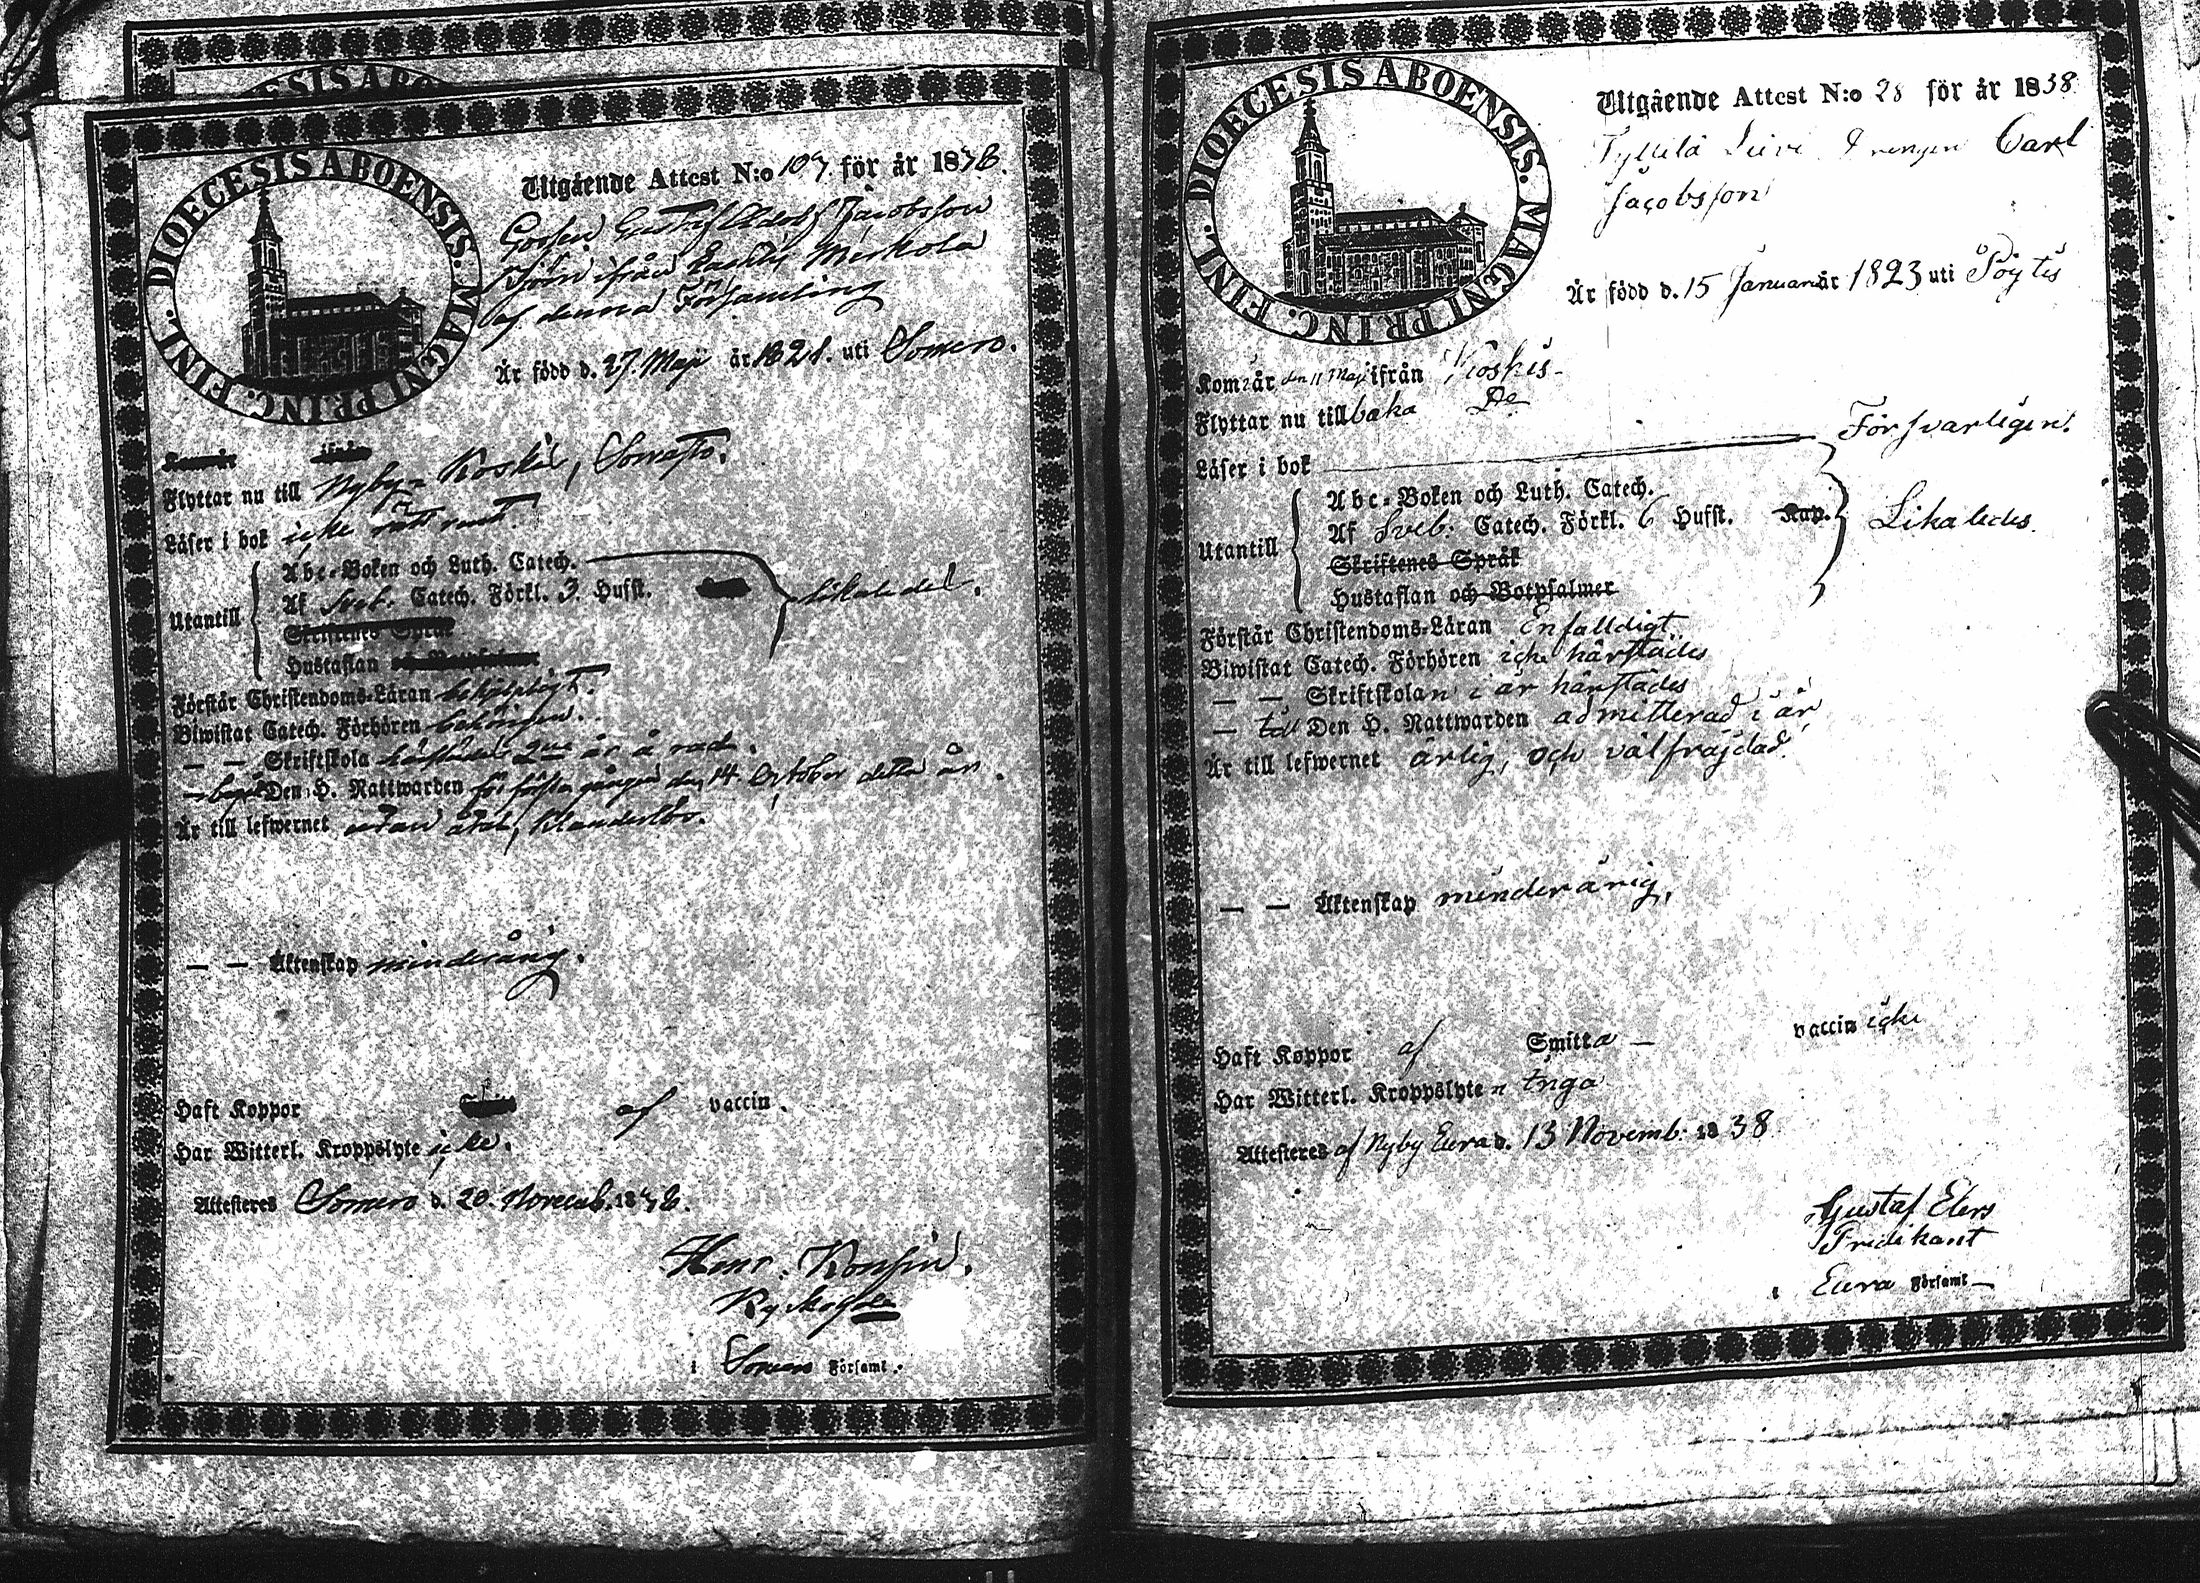 DIOECESIS ABOENSIS. MAGNI PRINC. FINL.
Utgående Attest N:o 107. för år 1838.
Gossen Gustaf Adolf Jacobsson
Björn ifrån Merkola
af denna Församling
Är född d. 27. Maji år 1821. uti Somero.
Kom år ifrån
Flyttar nu till Nyby-Koskis,
Läser i bok icke rätt rent.
Utantill
Abc-Boken och Luth. Catech.
Af Sveb. Catech. Förkl. 3. Hufst.
Skriftenes Språk
Hustaflan och Botpsalmer
Likaledes.
Förstår Christendoms-Läran hjelpligt.
Biwistat Catech. Förhören behörigen.
— — Skriftskola härstädes 2ne år å rad.
— begått Den H. Nattwarden för första gången den 14. October detta år.
Är till lefwernet utan åtal, klanderlös.
— — Äktenskap minderårig.
Haft Koppor af vaccin.
Har Witterl. Kroppslyte icke.
Attesteres Somero d. 20. Novemb. 1838.
Henr.
i Somero Församl.
DIOECESIS ABOENSIS. MAGNI PRINC. FINL.
Utgående Attest N:o 28 för år 1838
Drengen Carl
Jacobsson
Är född d. 15 Januari år 1823 uti Pöytis
Kom i år den 11 Maji ifrån Koskis-
Flyttar nu tillbaka Do
Läser i bok Försvarligen.
Utantill
Abc-Boken och Luth. Catech.
Af Sveb: Catech. Förkl. 6 Hufst. Kap.
Skriftenes Språk
Hustaflan och Botpsalmer
Likaledes.
Förstår Christendoms-Läran Enfaldigt
Biwistat Catech. Förhören icke härstädes
— — Skriftskolan i år härstädes
— till Den H. Nattwarden admitterad i år
Är till lefwernet ärlig, och välfräjdad.
— — Äktenskap minderårig,
Haft Koppor af Smitta — vaccin icke
Har Witterl. Kroppslyten Inga
Attesteres af Nyby Eura d. 13 Novemb: 1838
Gustaf Elers
Predikant
i Eura Församl —